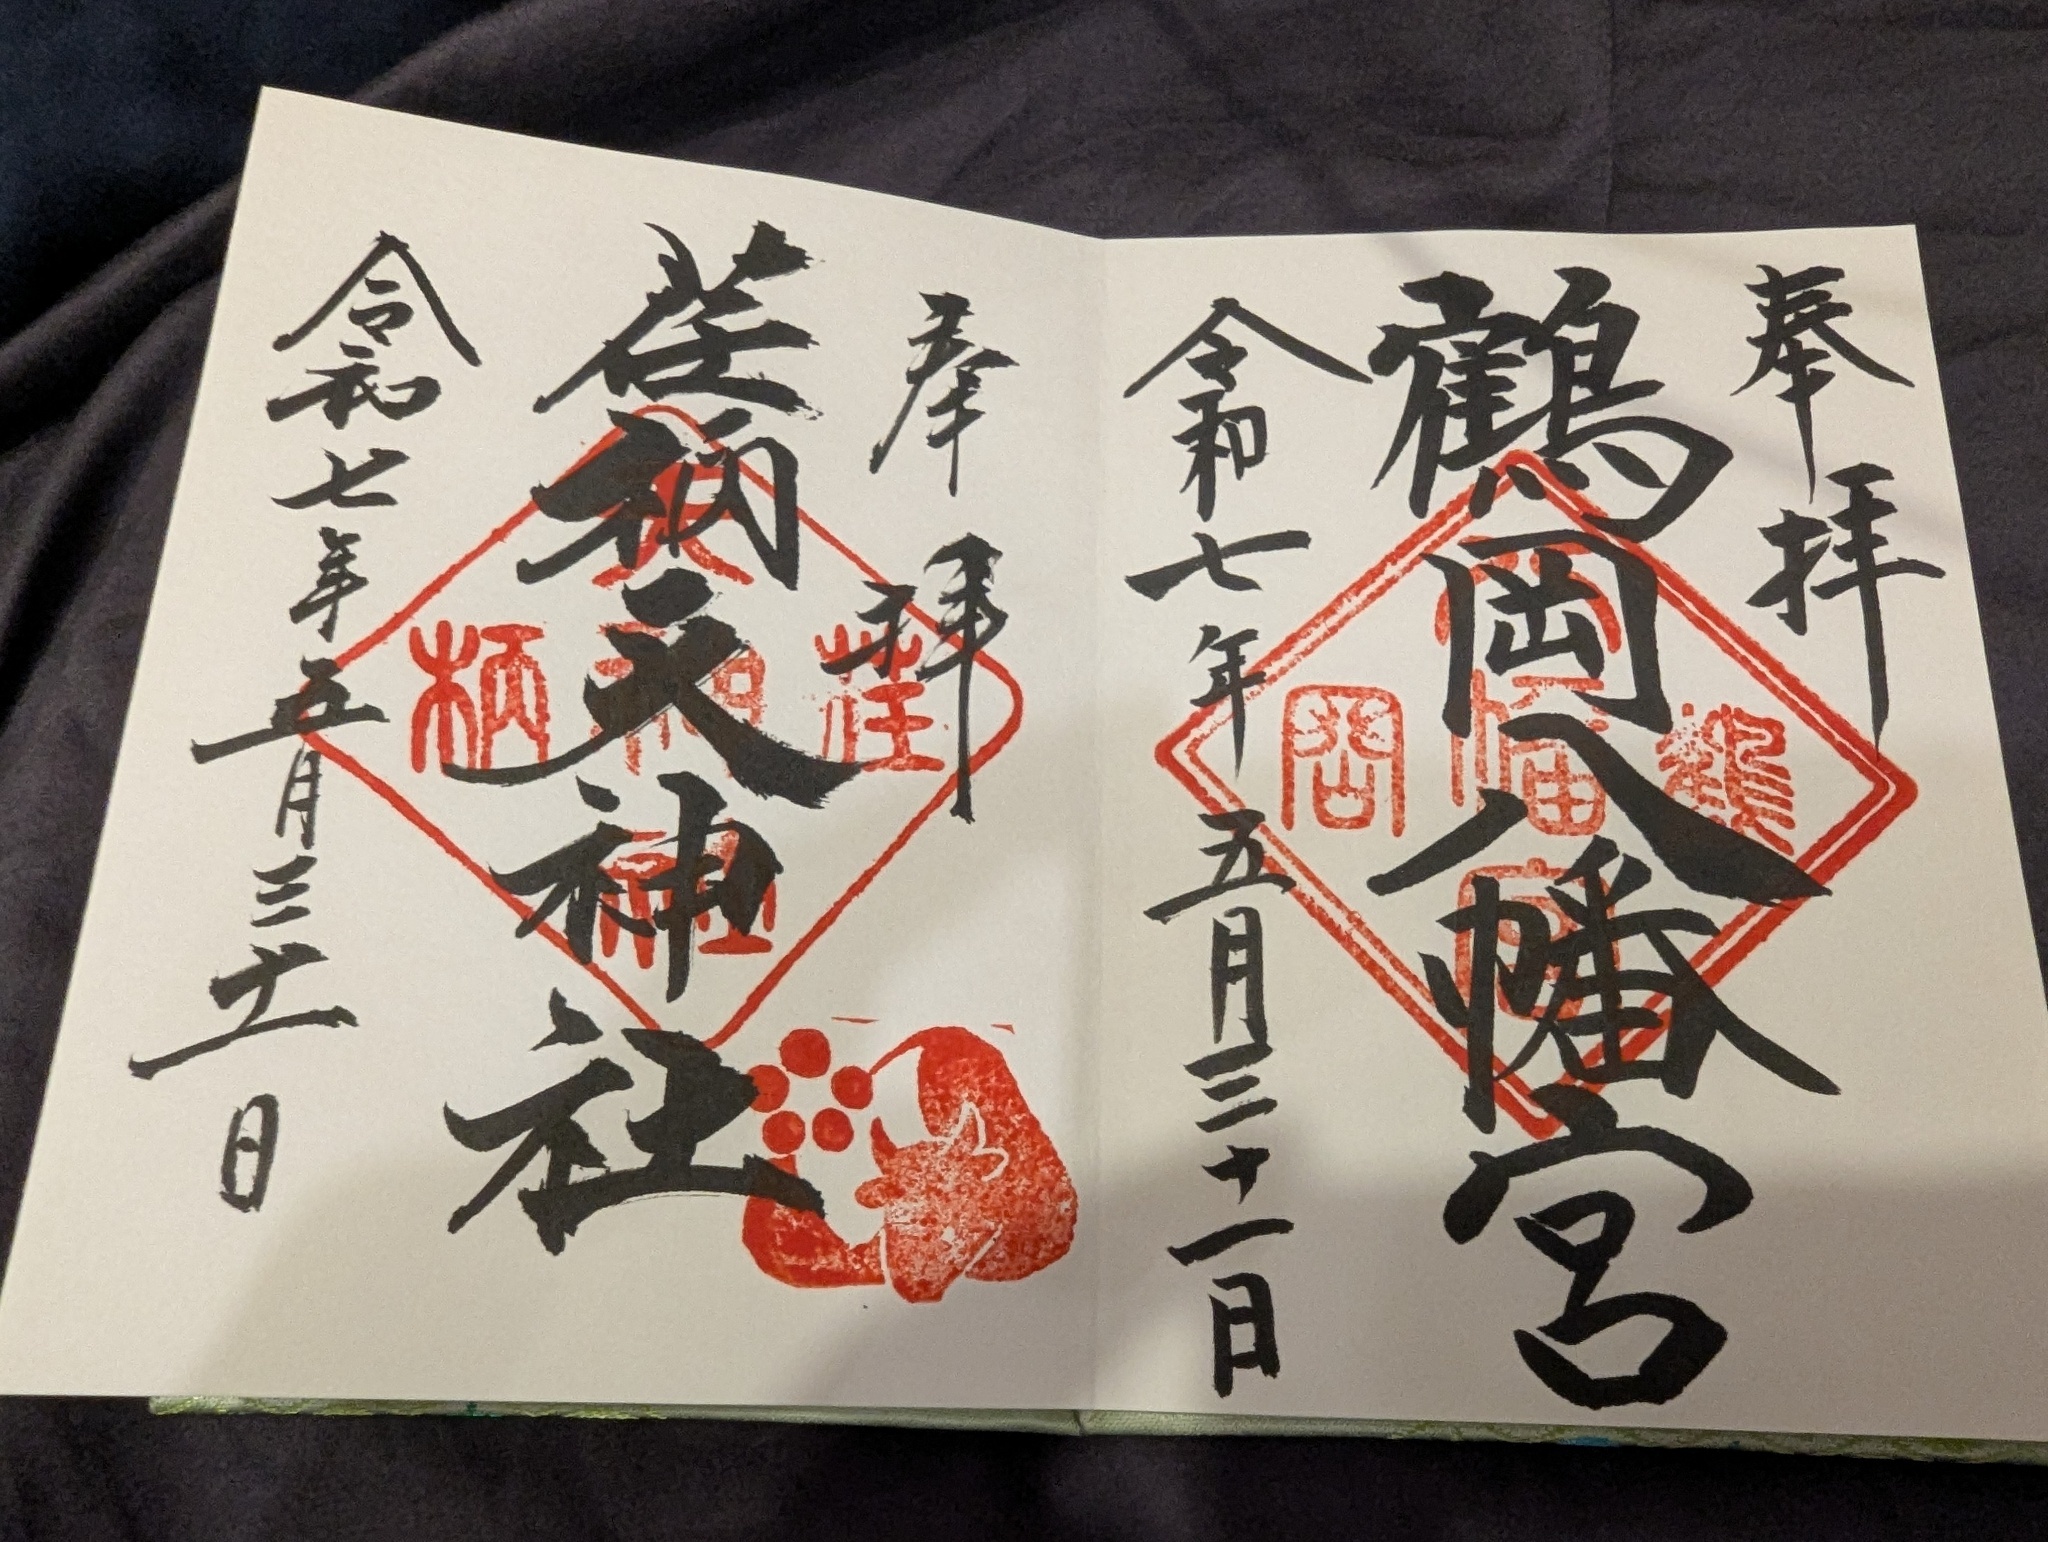 奉拝
鶴岡八幡宮
令和七年五月三十一日
鶴
八
幡
宮
岡
奉拝
荏柄天神社
令和七年五月三十一日
荏
天
神
社
柄